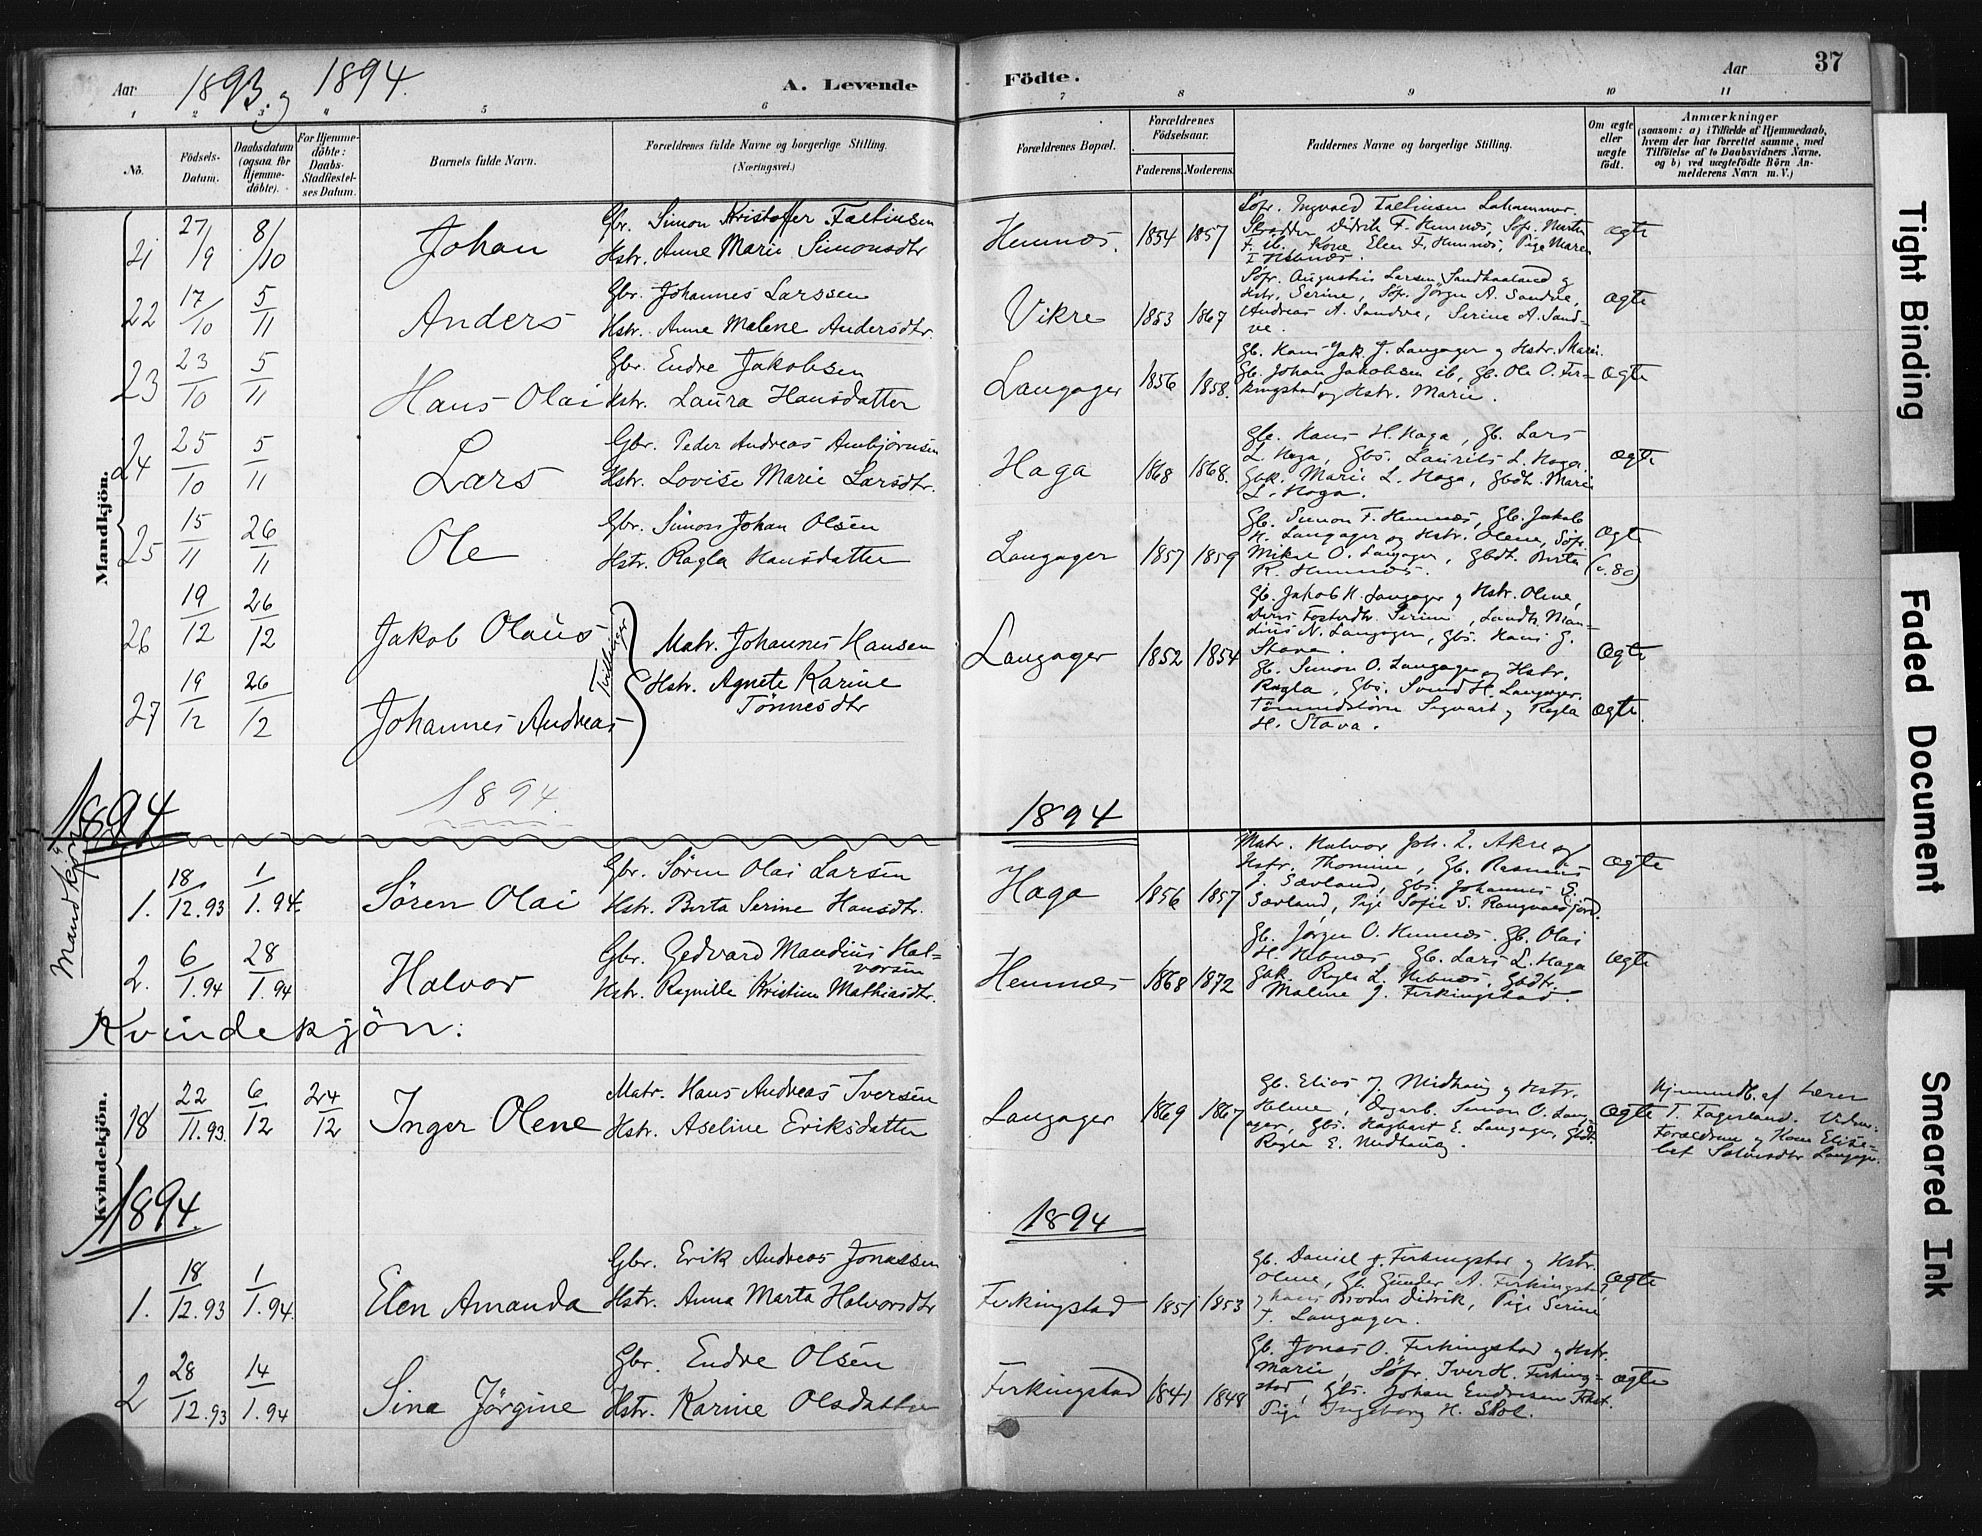 Aar 1893 og 1894.
A. Levende
Födte.
Aar
37
1 2 3 4 5 6 7 8 9 10 11
No.
Födsels-Datum.
Daabsdatum (ogsaa for Hjemme-döbte).
For Hjemme-döbte: Daabs-Stadfæstel-ses Datum.
Barnets fulde Navn.
Forældrenes fulde Navne og borgerlige Stilling. (Næringsvei.)
Forældrenes Bopæl.
Forældrenes Födselsaar.
Faderens. Moderens.
Faddernes Navne og borgerlige Stilling.
Om ægte eller uægte födt.
Anmærkninger
(saasom: a) i Tilfælde af Hjemmedaab, hvem der har forrettet samme, med Tilföielse af to Daabsvidners Navne, og b) ved uægtefödte Börn An-melderens Navn m. V.)
Mandkjön.
21 27/9 8/10 Johan
Gbr. Simon Kristoffer Faltinsen
Hstr. Anne Marie Simonsdtr
Hemnæs. 1854 1857
Söfr. Ingvald Faltinsen
Skrædder Didrik F. Hemnæs, Söfr. Martin
F. ib., Kone Elen F. Hemnæs, Pige Maren
ægte
22 17/10 5/11 Anders
Gbr. Johannes Larssen
Hstr. Anne Malene Andersdtr.
Vikre 1853 1867
Söfr. Augustin Larsen Sandhaaland og
Hstr. Serine, Söfr. Jörgen A. Sandve,
Andreas A. Sandve, Serine A. Sand-
ve.
ægte
23 23/10 5/11 Hans Olai
Gbr. Endre Jakobsen
Hstr. Laura Hansdatter
Langager 1856 1858.
Gb. Hans Jak. J. Langager og Hstr. Marie.
Gb. Johan Jakobsen ib, Gb. Ole O. Fir-
kingstad og Hstr. Marie.
ægte
24 25/10 5/11 Lars
Gbr. Peder Andreas Ambjørnsen
Hstr. Lovise Marie Larsdtr.
Haga 1868 1868.
Gb. Hans H. Haga, Gb. Lars
L. Haga, Gbs. Laurits L. Haga.
Gbk. Marie L. Haga, Gbdtr. Marie
L. Haga.
ægte
25 15/11 26/11 Ole
Gbr. Simon Johan Olsen
Hstr. Ragla Hansdatter
Langager 1857 1859
Gb. Simon F. Hemnæs, Gb. Jakob
H. Langager og Hstr. Olene, Söfr.
Mikal O. Langager, Gbdt. Berta
R. Hemnæs.
ægte
26 19/12 26/12 Jakob Olaus
27 19/12 26/12 Johannes Andreas
Tvillinger
Matr. Johannes Hansen
Hstr. Agnete Karine
Tönnesdtr
Langager 1852 1854
Gb. Jakob H. Langager og Hstr. Olene,
deres Fosterdtr. Serine,
N. Langager, Gbs. Hans G.
Stava.
ægte
Gb. Simon O. Langager og Hstr.
Ragla, Gbs. Svend H. Langager.
Sigvart og Ragla
H. Stava.
ægte.
1894.
1894
1894
Mandkjön
1. 18/12.93 1/1.94. Sören Olai
Gbr. Sören Olai Larsen
Hstr. Berta Serine Hansdtr.
Haga 1856 1857
Matr. Halvor Joh. L. Akre og
Hstr. Thomine, Gb. Rasmus
J. Sævland, Gbs. Johannes S.
Sævland, Pige Sofie S.
ægte
2. 6/1.94 28/1.94 Halvor
Gbr. Gedvard Mandius Hal-
vorsen
Hstr. Ragnille Kristine Mathiasdtr.
Hemnæs 1868 1872
Gb. Jörgen O. Hemnæs. Gb. Olai
H. Hebnæs, Gb. Lars L. Haga
Gbk. Ragla L. Hebnæs. Gbdtr.
Maline J. Firkingstad.
ægte
Kvindekjön:
Kvindekjön.
18 22/11.93. 6/12 24/12 Inger Olene
Matr. Hans Andreas Iversen
Hstr. Aseline Eriksdatter
Langager 1869 1867
Gb. Elias J. Medhaug og Hstr.
Helene, Dagarb. Simon O. Lang-
ager, Gbs. Hagbart E. Langager, Gbdt.
Ragla E. Medhaug.
ægte
Hjemmedb. af Lærer
T. Fagerland.
Forældrene og Kone Elise-
bet Salvesdtr Langager.
1894.
1894
1. 18/12.93 1/1.94. Elen Amanda
Gbr. Erik Andreas Jonassen
Hstr. Anna Marta Halvorsdtr
Firkingstad 1851 1853
Gb. Daniel J. Firkingstad og Hstr.
Olene, Gb. Gunder A. Firkingstad
og hans Broder Didrik, Pige Serine
T. Langager.
ægte
2 28/12.93 14/1.94 Sina Jörgine
Gbr. Endre Olsen
Hstr. Karine Olsdatter
Firkingstad 1841 1848
Gb. Jonas O. Firkingstad og Hstr.
Marie, Söfr. Iver H. Firking-
stad, Gbs. Johan Endresen Fkst.
Pige Ingeborg H. Skol.
ægte
Tight Binding
Faded Document
Smeared Ink